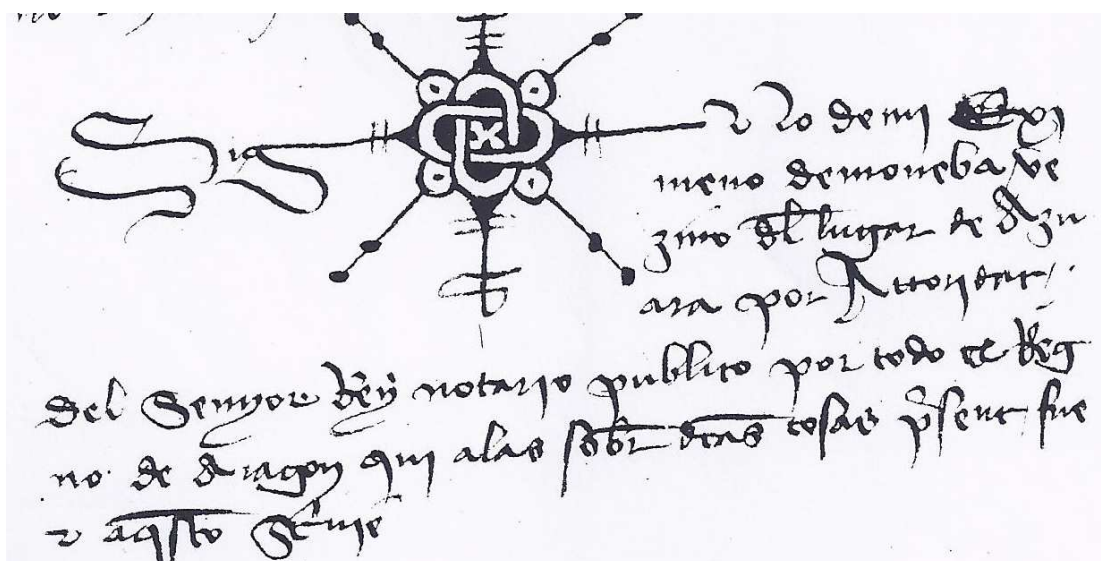 Sig No de mi Exi
meno de moneba ve
zino dl lugar de Azu
ara por Actoridat
del Senyor Rey notario publico por todo el Reg
no de Aragon qui alas sobr dcas cosas psent fue
e aqsto Scriuie